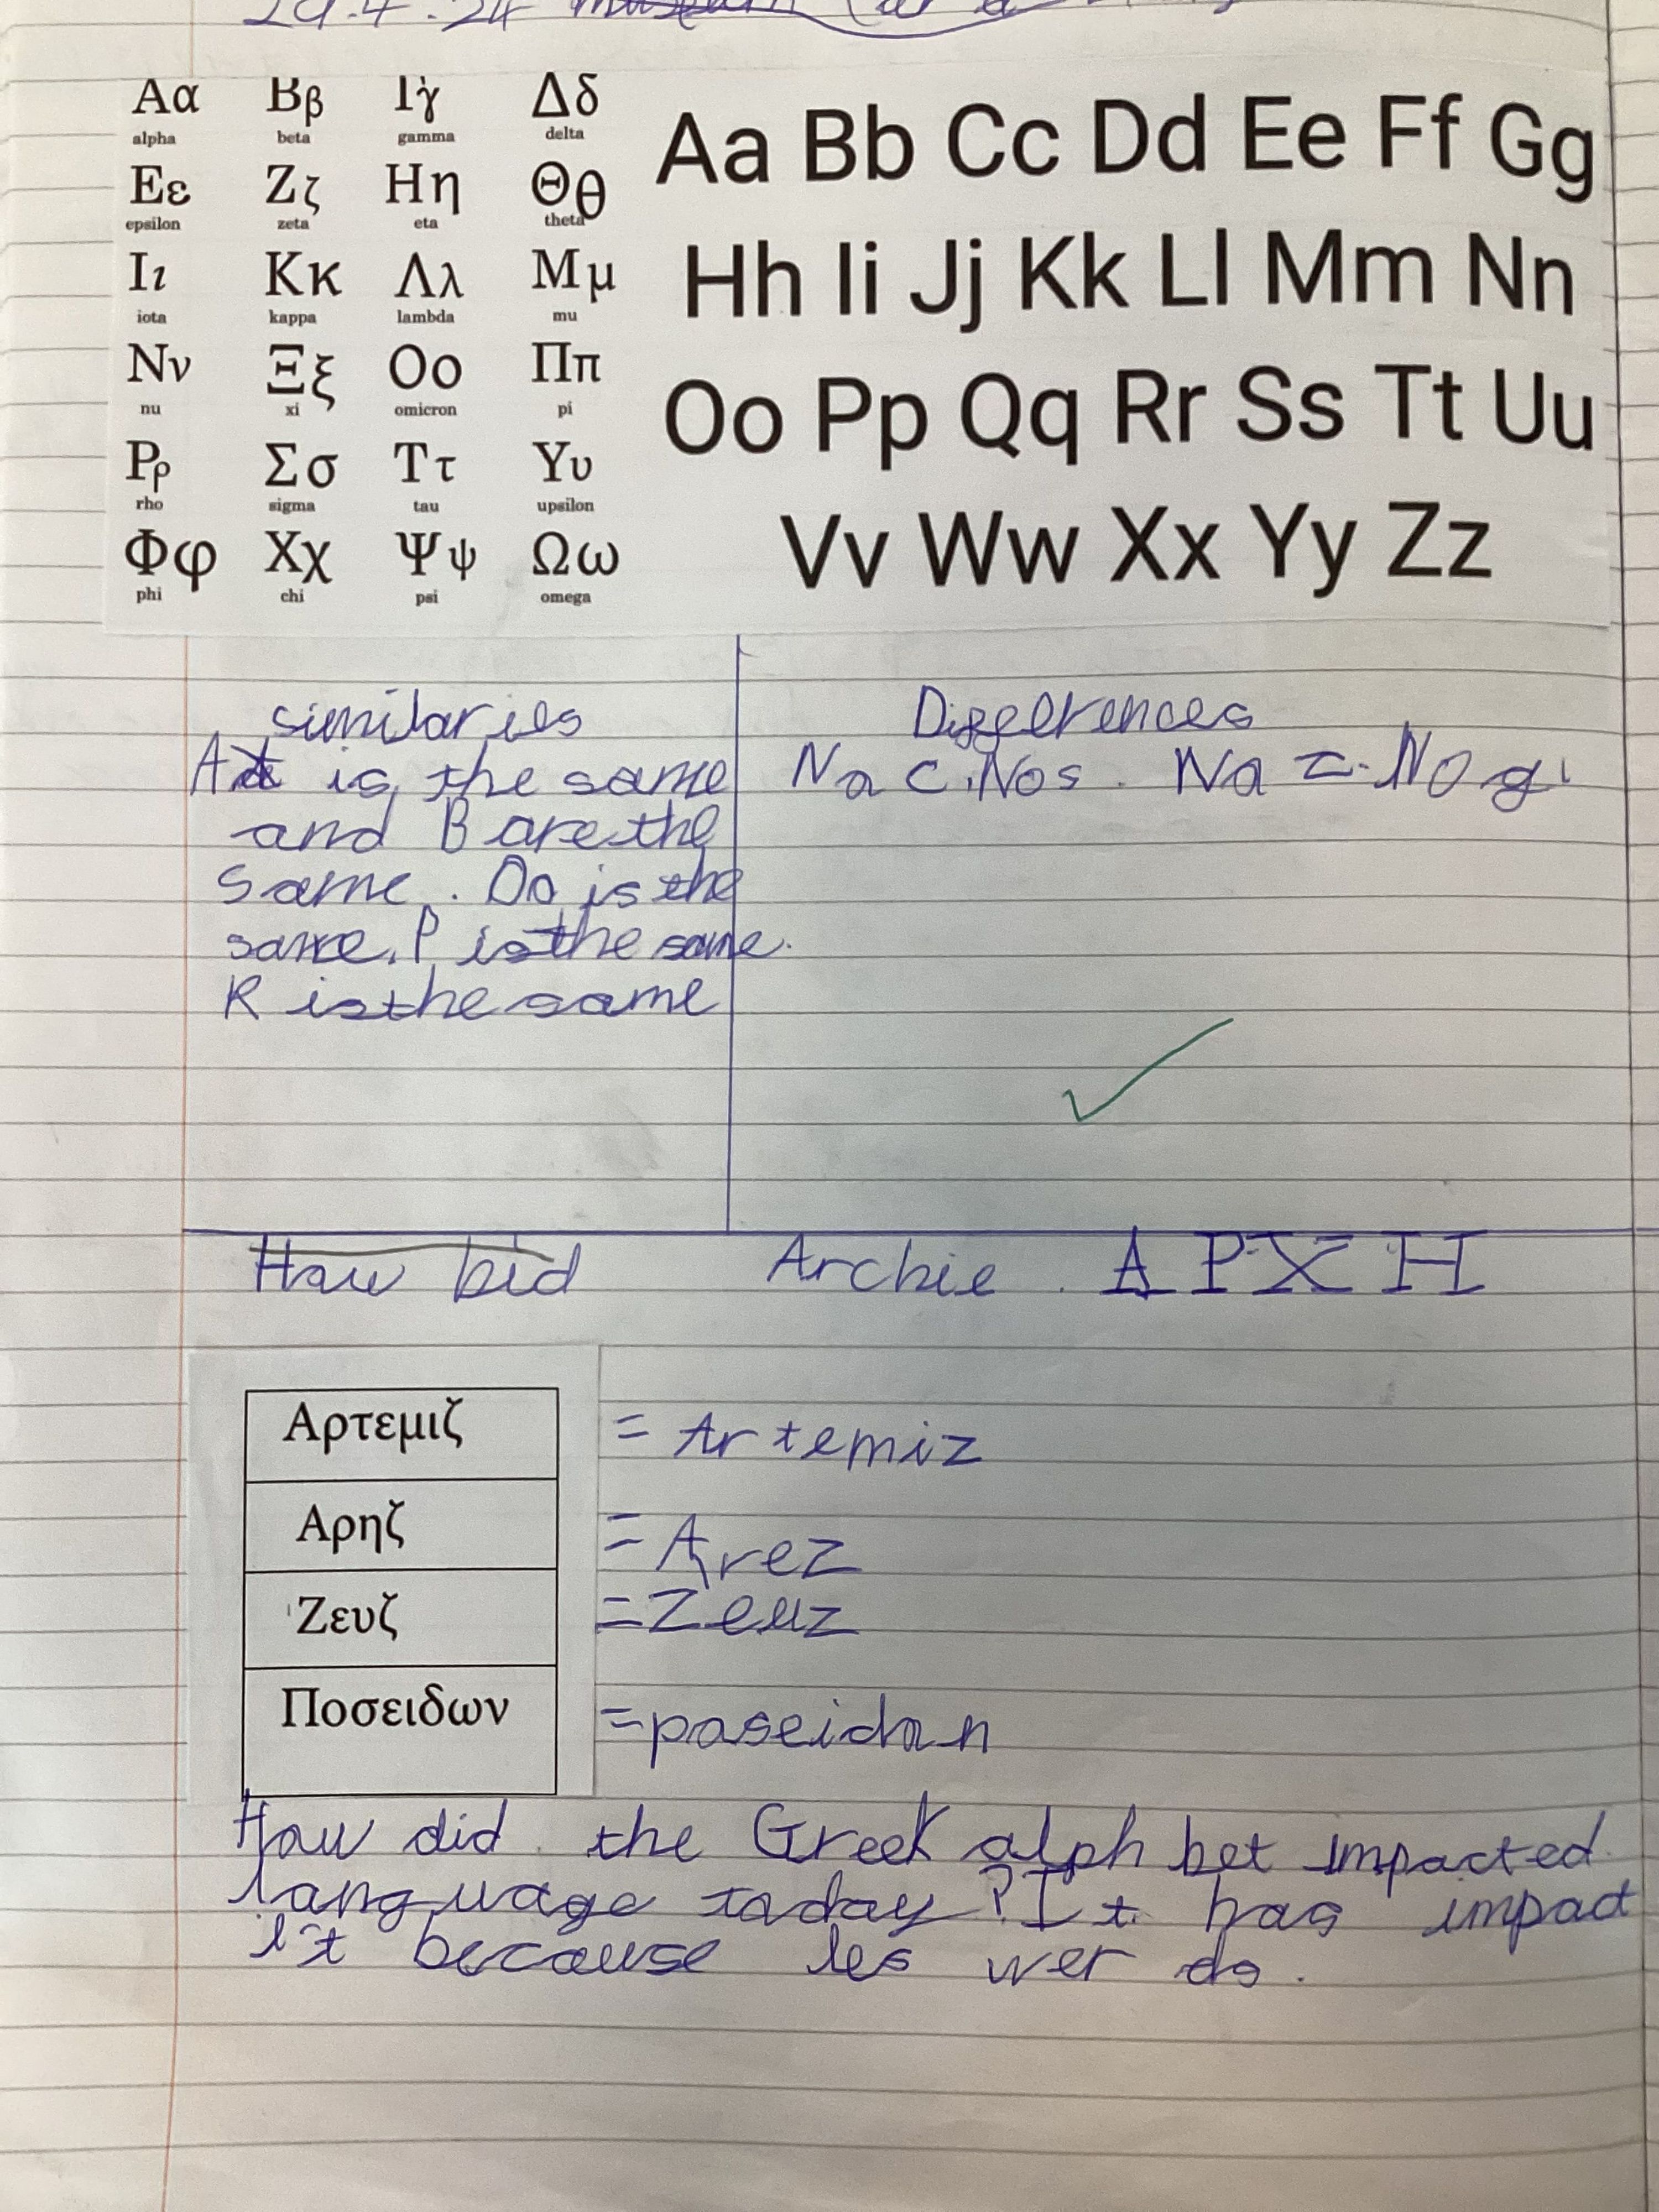 29.4.24
Αα Ββ Γγ Δδ
alpha beta gamma delta
Εε Ζζ Ηη Θθ
epsilon zeta eta theta
Ιι Κκ Λλ Μμ
iota kappa lambda mu
Νν Ξξ Οο Ππ
nu xi omicron pi
Ρρ Σσ Ττ Υυ
rho sigma tau upsilon
Φφ Χχ Ψψ Ωω
phi chi psi omega
Aa Bb Cc Dd Ee Ff Gg
Hh Ii Jj Kk Ll Mm Nn
Oo Pp Qq Rr Ss Tt Uu
Vv Ww Xx Yy Zz
similaries
is the same
and B are the
same. Oo is the
same. P is the same.
K is the same
Diffelrences
No C. No s. No No g
How bid
Archie. A P X H
Αρτεμιζ = Artemiz
Αρηζ = Arez
Ζευζ = Zeuz
Ποσειδων = poseidon
How did the Greek alph bet impacted
language today? It has impact
it because les wer do.